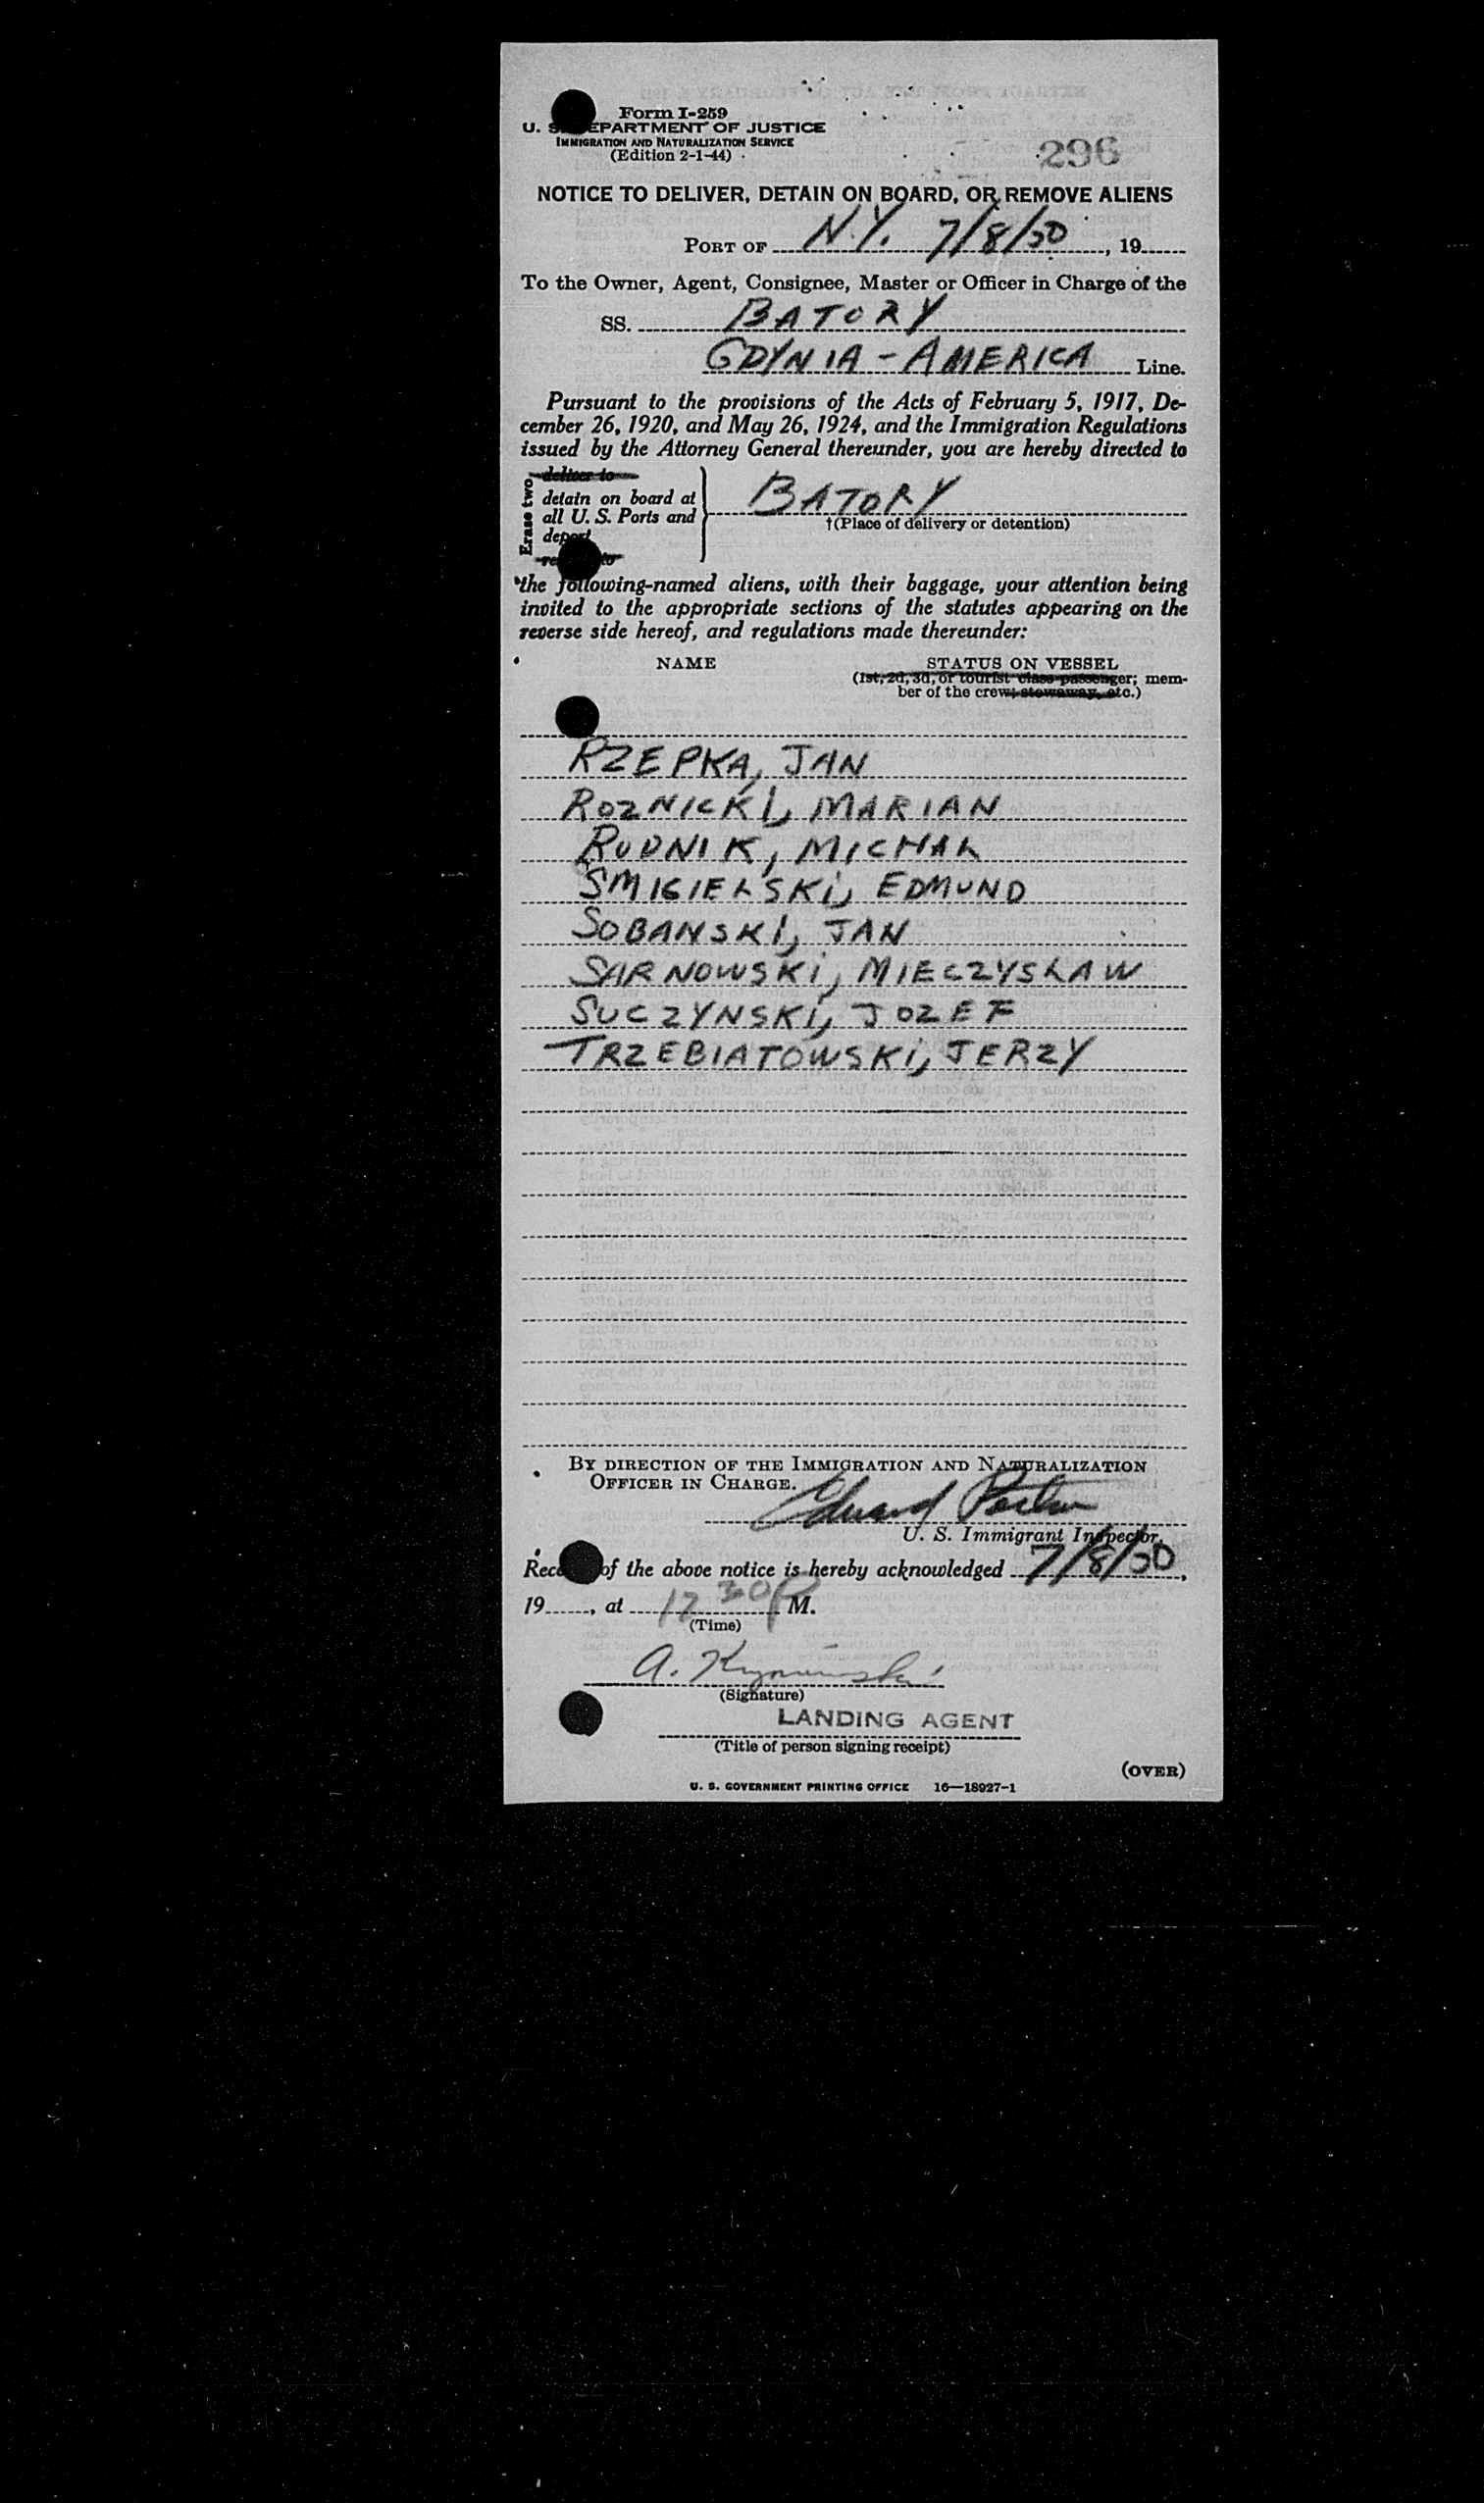 Form I-259
U. S. DEPARTMENT OF JUSTICE
IMMIGRATION AND NATURALIZATION SERVICE
(Edition 2-1-44)
296
NOTICE TO DELIVER, DETAIN ON BOARD, OR REMOVE ALIENS
PORT OF N.Y. 7/8/50, 19
To the Owner, Agent, Consignee, Master or Officer in Charge of the
SS. BATORY
GDYNIA-AMERICA Line.
Pursuant to the provisions of the Acts of February 5, 1917, De-
cember 26, 1920, and May 26, 1924, and the Immigration Regulations
issued by the Attorney General thereunder, you are hereby directed to
Erase two
deliver to
detain on board at
all U. S. Ports and
deport
BATORY
†(Place of delivery or detention)
the following-named aliens, with their baggage, your attention being
invited to the appropriate sections of the statutes appearing on the
reverse side hereof, and regulations made thereunder:
NAME STATUS ON VESSEL
(1st, 2d, 3d, or tourist class passenger; mem-
ber of the crew; stowaway, etc.)
RZEPKA, JAN
ROZNICKI, MARIAN
RUDNIK, MICHAL
SMIGIELSKI, EDMUND
SOBANSKI, JAN
SARNOWSKI, MIECZYSLAW
SUCZYNSKI, JOZEF
TRZEBIATOWSKI, JERZY
BY DIRECTION OF THE IMMIGRATION AND NATURALIZATION
OFFICER IN CHARGE.
Edward
U. S. Immigrant Inspector.
Receipt of the above notice is hereby acknowledged 7/8/50,
19, at 12 30 P M.
(Time)
A.
(Signature)
LANDING AGENT
(Title of person signing receipt)
(OVER)
U. S. GOVERNMENT PRINTING OFFICE 16—18927-1